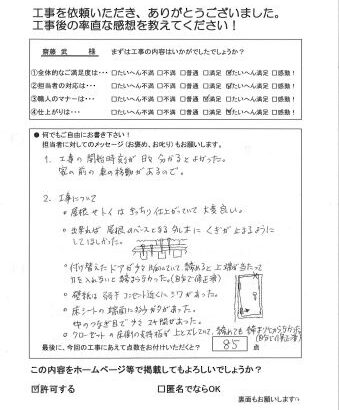 工事を依頼いただき、ありがとうございました。
工事後の率直な感想を教えてください！
齋藤 武 様 まずは工事の内容はいかがでしたでしょうか？
①全体的なご満足度は・・・ □たいへん不満 □不満 □普通 □満足 ☑たいへん満足 □感動！
②担当者の対応は・・・ □たいへん不満 □不満 □普通 □満足 ☑たいへん満足 □感動！
③職人のマナーは・・・ □たいへん不満 □不満 □普通 ☑満足 □たいへん満足 □感動！
④仕上がりは・・・ □たいへん不満 □不満 □普通 ☑満足 □たいへん満足 □感動！
● 何でもご自由にお書き下さい！
担当者に対してのメッセージ（お褒め、お叱り）もお願いします。
1. 工事の開始時刻が日々分かるとよかった。
家の前の車の移動があるので。
2. 工事について
・屋根やトイはきっちり仕上がっていて大変良い。
・出来れば屋根のベースとなる外し木にくぎが止まるように
してほしかった。
・付け替えたドアが少々
上端が当たって
力を入れないと締まらなかった。(自分で修正済)
・壁紙は若干コンセント近くにシワがあった。
・床シートの端面に
があった。
つなぎ目で少々スキ間があった。
・クローゼットの
最後に、今回の工事にあえて点数をお付けいただくと？ 85 点
この内容をホームページ等で掲載してもよろしいでしょうか？
☑許可する □匿名でならOK
裏面もお願いします